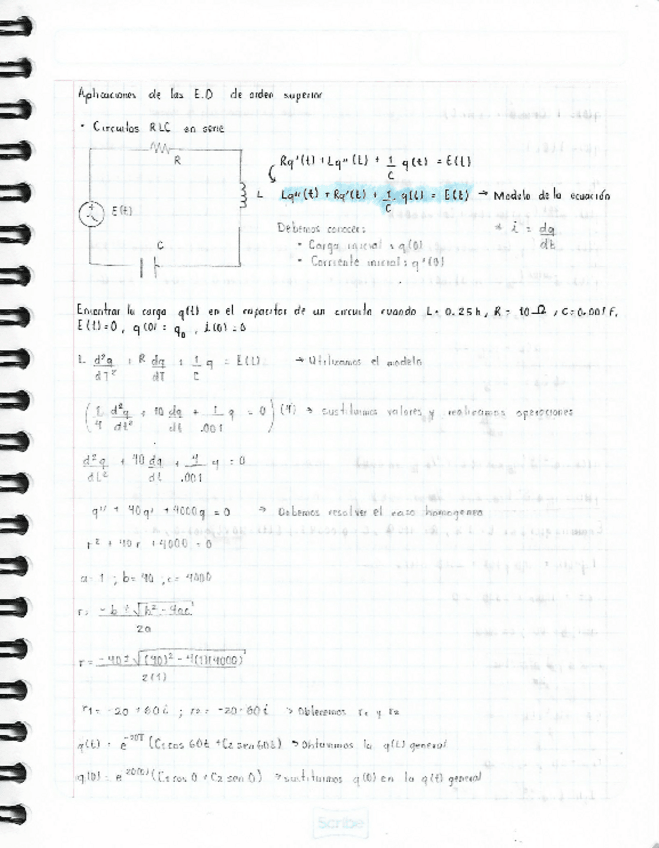 Aplicaciones de las E.D de orden superior
• Circuitos RLC en serie
R
Rq'(t) + Lq''(t) + 1/C q(t) = E(t)
L
Lq''(t) + Rq'(t) + 1/C q(t) = E(t) → Modelo de la ecuación
E(t)
Debemos conocer:
* i = dq/dt
• Carga inicial : q(0)
C
• Corriente inicial : q'(0)
Encontrar la carga q(t) en el capacitor de un circuito cuando L= 0.25h, R= 10Ω, C=0.001F,
E(t)=0, q(0) = q₀, i(0)=0
L d²q/dT² + R dq/dT + 1/C q = E(t) → Utilizamos el modelo
(1/4 d²q/dt² + 10 dq/dt + 1/.001 q = 0)(4) → sustituimos valores y realizamos operaciones
d²q/dt² + 40 dq/dt + 4/.001 q = 0
q'' + 40q' + 4000q = 0 → Debemos resolver el caso homogeneo
r² + 40r + 4000 = 0
a= 1 ; b= 40 ; c= 4000
r= -b ± √b² - 4ac / 2a
r= -40 ± √(40)² - 4(1)(4000) / 2(1)
r1= -20 + 60i ; r2= -20-60i → Obtenemos r1 y r2
q(t) = e^-20T (C1 cos 60t + C2 sen 60t) → Obtuvimos la q(t) general
q(0) = e^-20(0) (C1 cos 0 + C2 sen 0) → sustituimos q(0) en la q(t) general
Scribe